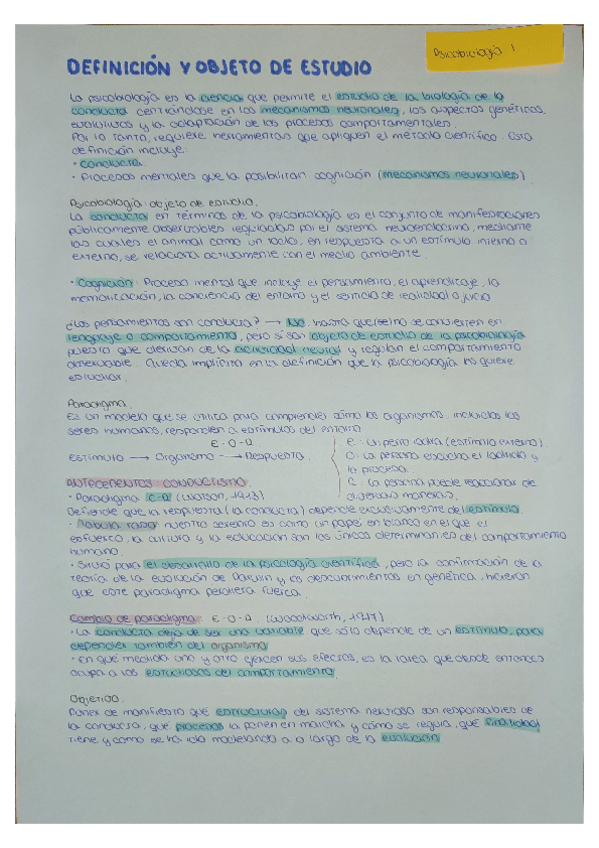 Psicobiología 1
DEFINICIÓN Y OBJETO DE ESTUDIO
La psicobiología es la ciencia que permite el estudio de la biología de la
conducta centrándose en los mecanismos neuronales, los aspectos genéticos,
evolutivos y la adaptación de los procesos comportamentales.
Por lo tanto, requiere herramientas que apliquen el método científico. Esta
definición incluye:
· Conducta.
· Procesos mentales que la posibilitan cognición (mecanismos neuronales)
Psicobiología: objeto de estudio.
La conducta en términos de la psicobiología es el conjunto de manifestaciones
públicamente observables reguladas por el sistema neuroendocrino, mediante
las cuales el animal como un todo, en respuesta a un estímulo interno o
externo, se relaciona activamente con el medio ambiente.
· Cognición: Proceso mental que incluye el pensamiento, el aprendizaje, la
memorización, la conciencia del entorno y el sentido de realidad o juicio
¿Los pensamientos son conducta? → No, hasta que se convierten en
lenguaje o comportamiento, pero sí son objeto de estudio de la psicobiología
puesto que derivan de la actividad neural y regulan el comportamiento
observable. Queda implícito en la definición que la psicobiología los quiere
estudiar.
Paradigma.
Es un modelo que se utiliza para comprender cómo los organismos, incluidos los
seres humanos, responden a estímulos del entorno
E-O-R
Estímulo → Organismo → Respuesta.
E: Un perro ladra (estímulo externo).
O: La persona escucha el ladrido y
lo procesa.
R: La persona puede reaccionar de
diversas maneras.
ANTECEDENTES CONDUCTISMO.
· Paradigma E-R (Watson, 1913)
Defiende que la respuesta (la conducta) depende exclusivamente del estímulo.
· Tabula rasa: nuestro cerebro es como un papel en blanco en el que el
esfuerzo, la cultura y la educación son los únicos determinantes del comportamiento
humano.
· Sirvió para el desarrollo de la psicología científica, pero la confirmación de la
teoría de la evolución de Darwin y los descubrimientos en genética, hicieron
que este paradigma perdiera fuerza.
Cambio de paradigma: E-O-R. (Woodworth, 1917)
· La conducta deja de ser una variable que solo depende de un estímulo, para
depender también del organismo
· En qué medida uno y otro ejercen sus efectos, es la tarea que desde entonces
ocupa a los estudiosos del comportamiento.
Objetivo.
Poner de manifiesto qué estructuras del sistema nervioso son responsables de
la conducta, qué procesos la ponen en marcha y cómo se regula, qué finalidad
tiene y cómo se ha ido modelando a lo largo de la evolución